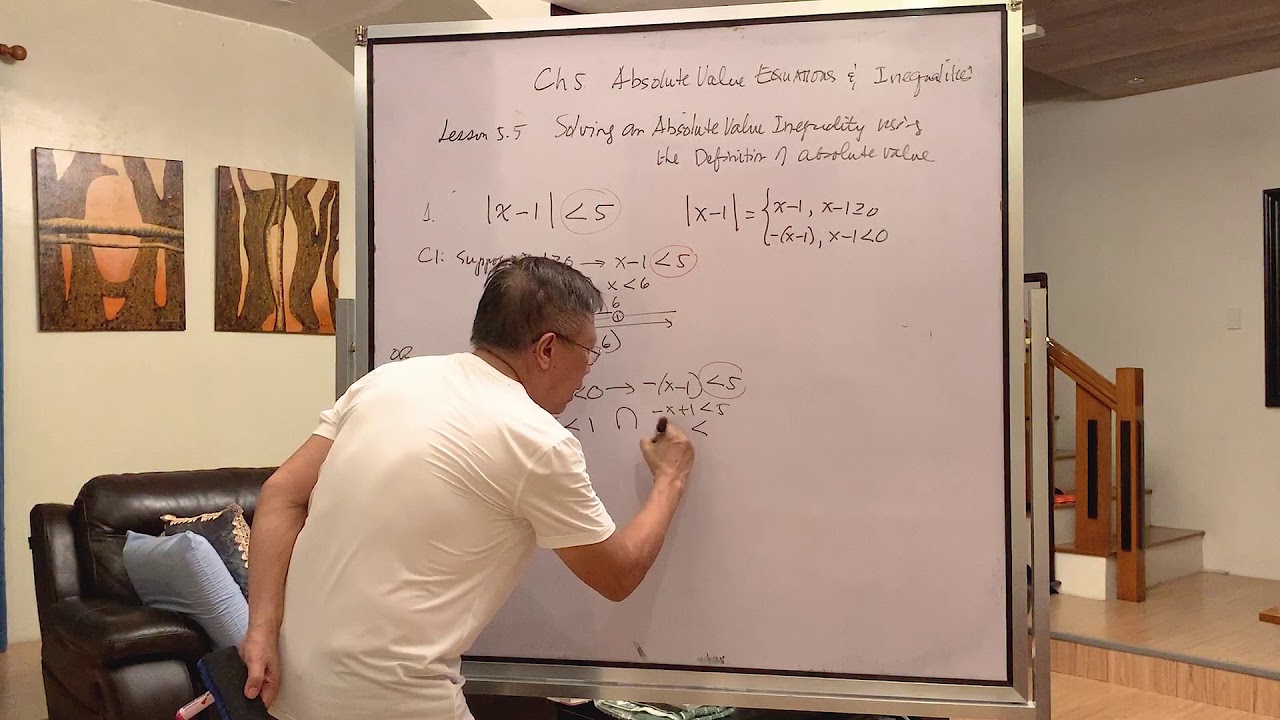 Ch 5 Absolute Value Equations & Inequalities
Lesson 5.5 Solving an Absolute Value Inequality using
the Definition of absolute value
1. |x-1| < 5 |x-1| = { x-1, x-1≥0
-(x-1), x-1<0
C1: Suppose ≥0 → x-1 < 5
x < 6
6
6)
OR
<0 → -(x-1) < 5
<1 ∩ -x+1 < 5
<